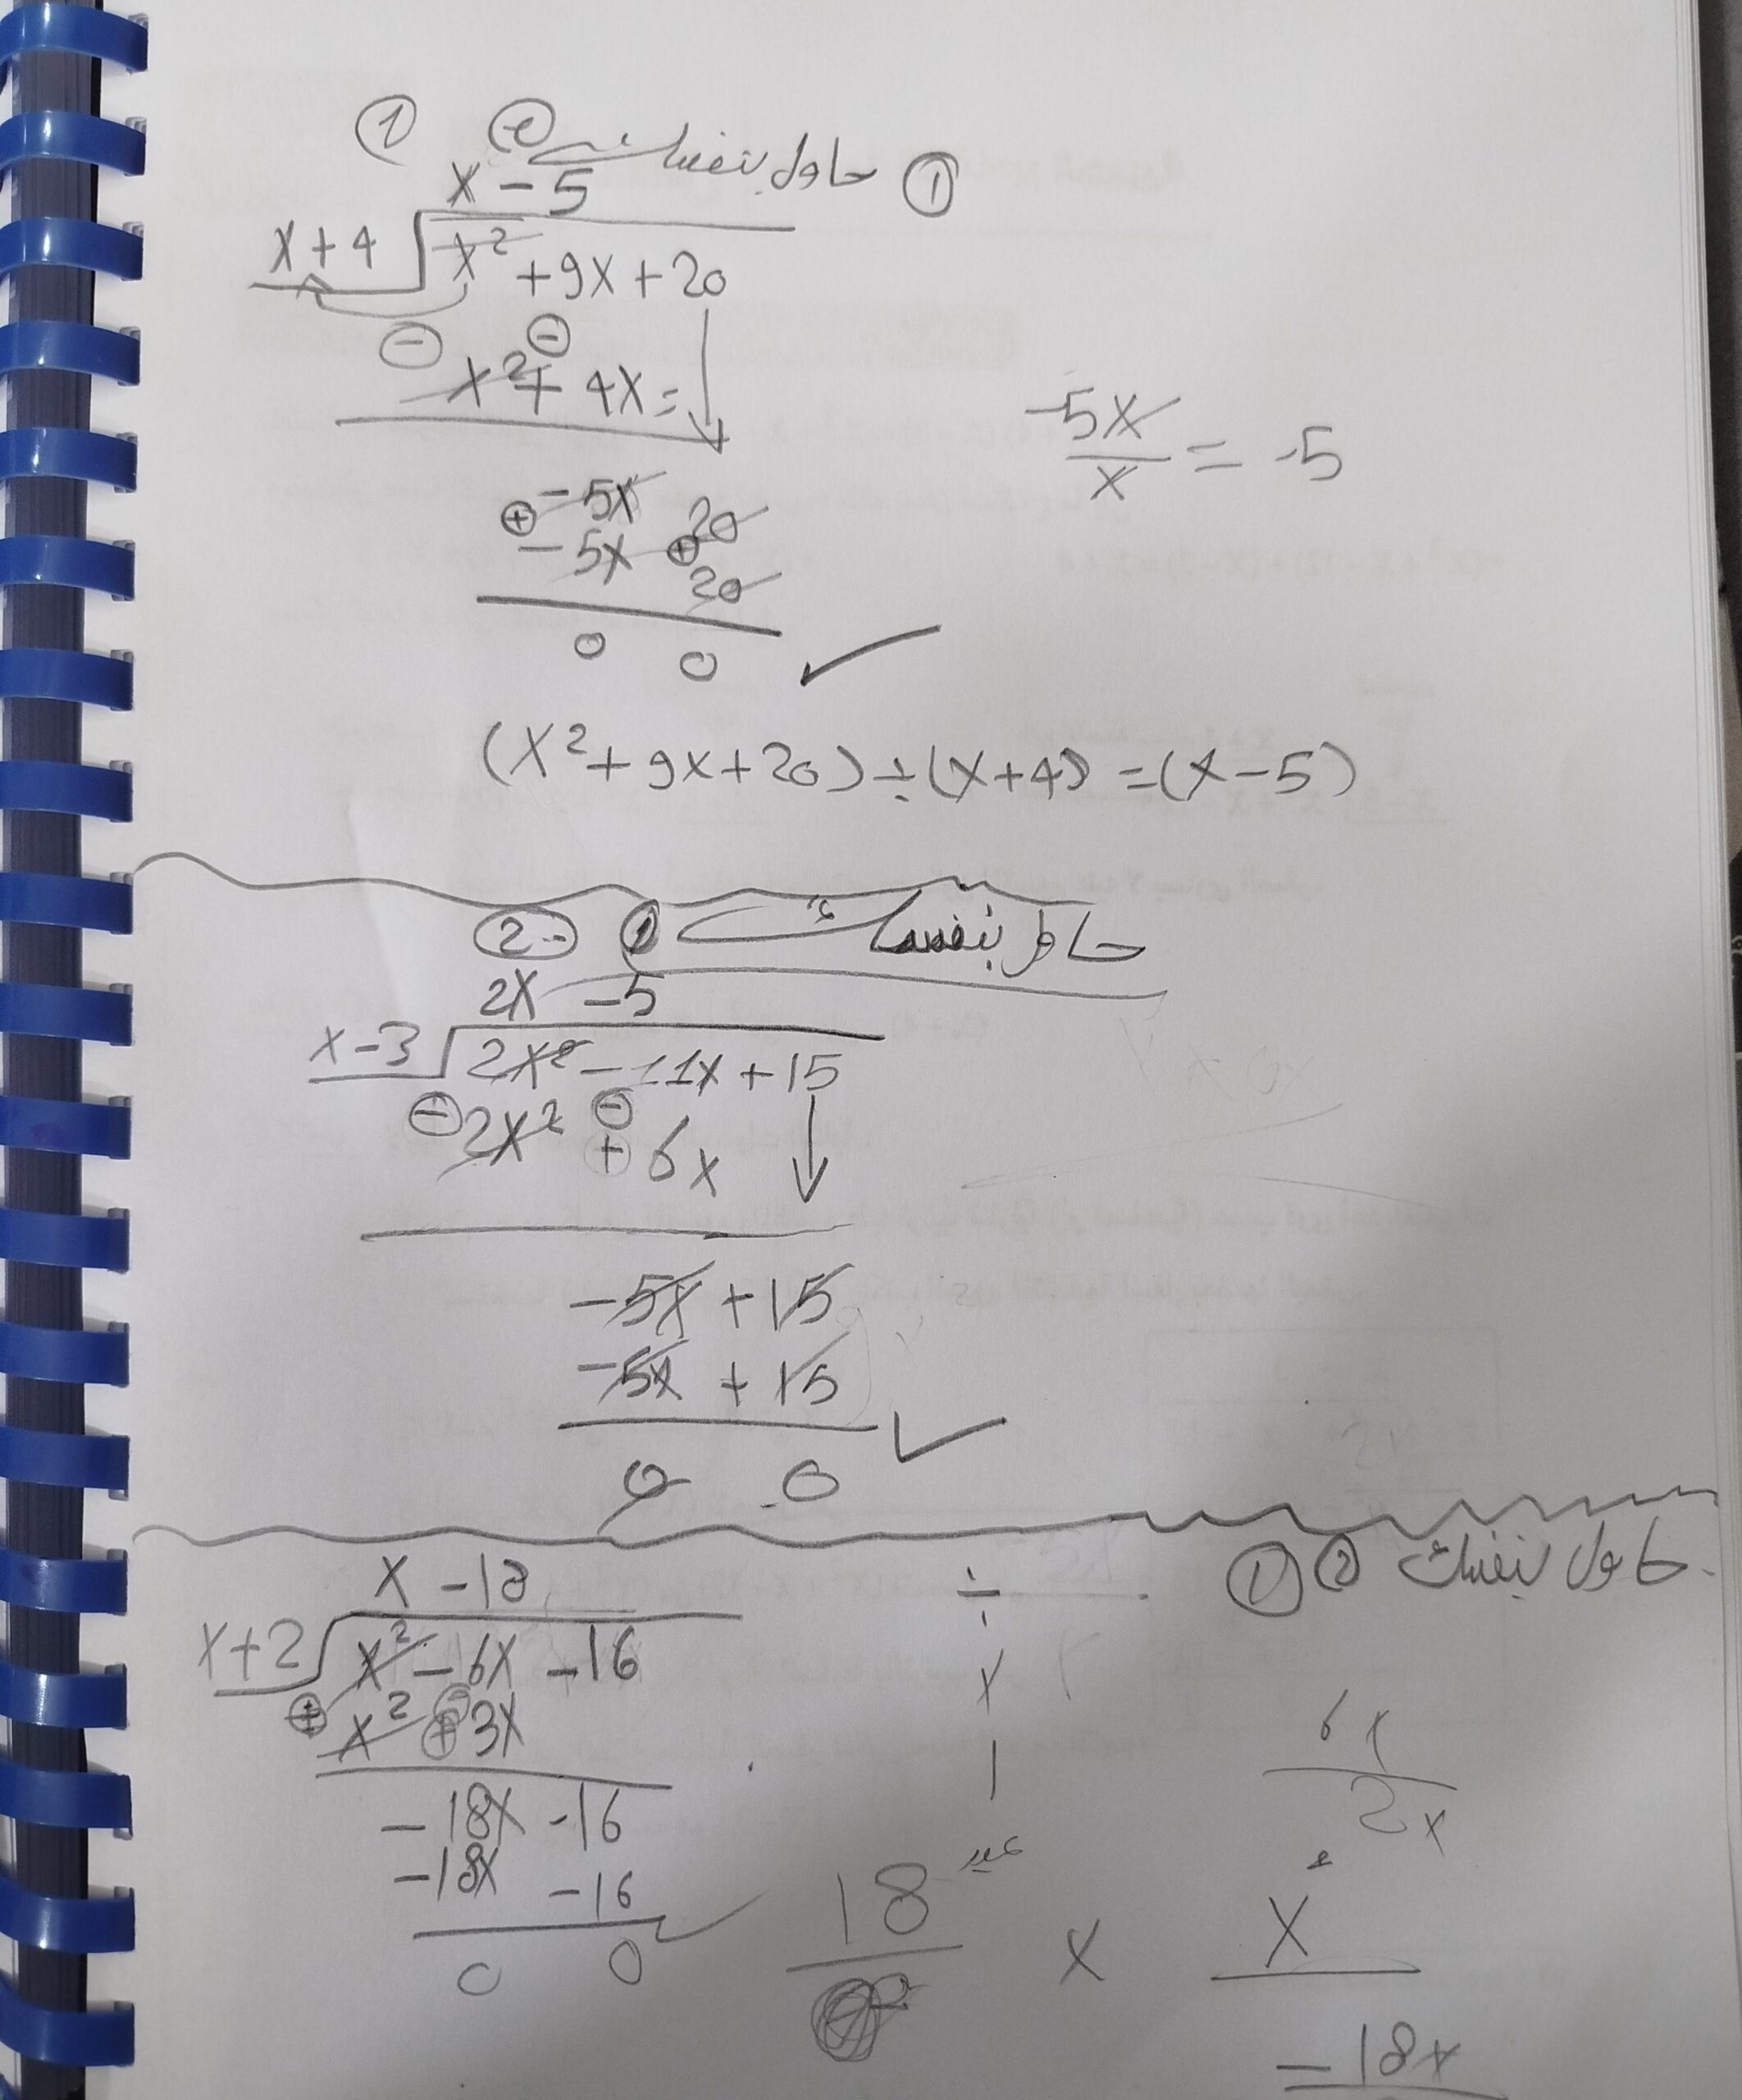 ① ② حاول بنفسك ①
x - 5
x + 4 x² + 9x + 20
⊖ ⊖
x² + 4x =
-5x 20
⊕ ⊕
-5x 20
0 0 ✓
-5x / x = -5
(x² + 9x + 20) ÷ (x + 4) = (x - 5)
② ① حاول بنفسك
2x - 5
x - 3 2x² - 11x + 15
⊖ ⊖
2x² + 6x
-5x + 15
-5x + 15
0 0 ✓
① ② حاول بنفسك
x - 18
x + 2 x² - 6x - 16
x² + 3x
-18x - 16
-18x - 16
0 0 ✓
÷
x
6x / 2x
18
x
x
-18x